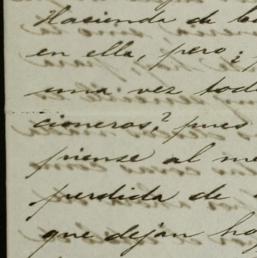 Hacienda de
en ella, pero ¿
una vez tod
cioneros,? pues
piense al me
perdida de
que dejan ho